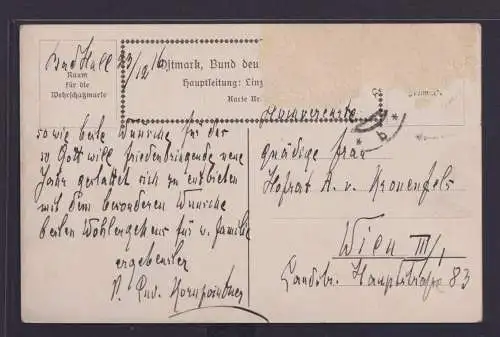 Bad Hall 23/12 16
Raum
für die
Wehrschatzmarke
Ostmark, Bund deu
Hauptleitung: Linz
Karte Nr.
sowie beste Wünsche für das
so Gott will friedenbringende neue
Jahr gestattet sich zu entbieten
mit dem besonderen Wunsche
besten Wohlergehens für w. Familie
ergebenster
b
gnädige Frau
Hofrat A. v. Kronenfels
Wien III/,
Landstr. Hauptstraße 83